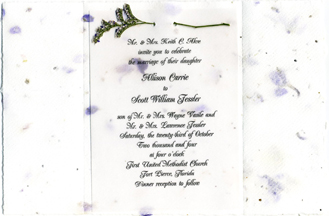 Mr. & Mrs. Keith C. Alen
invite you to celebrate
the marriage of their daughter
Allison Carrie
to
Scott William Tessler
son of Mr. & Mrs. Wayne Vasile and
Mr. & Mrs. Lawrence Tessler
Saturday, the twenty-third of October
Two thousand and four
at four o'clock
First United Methodist Church
Fort Pierce, Florida
Dinner reception to follow